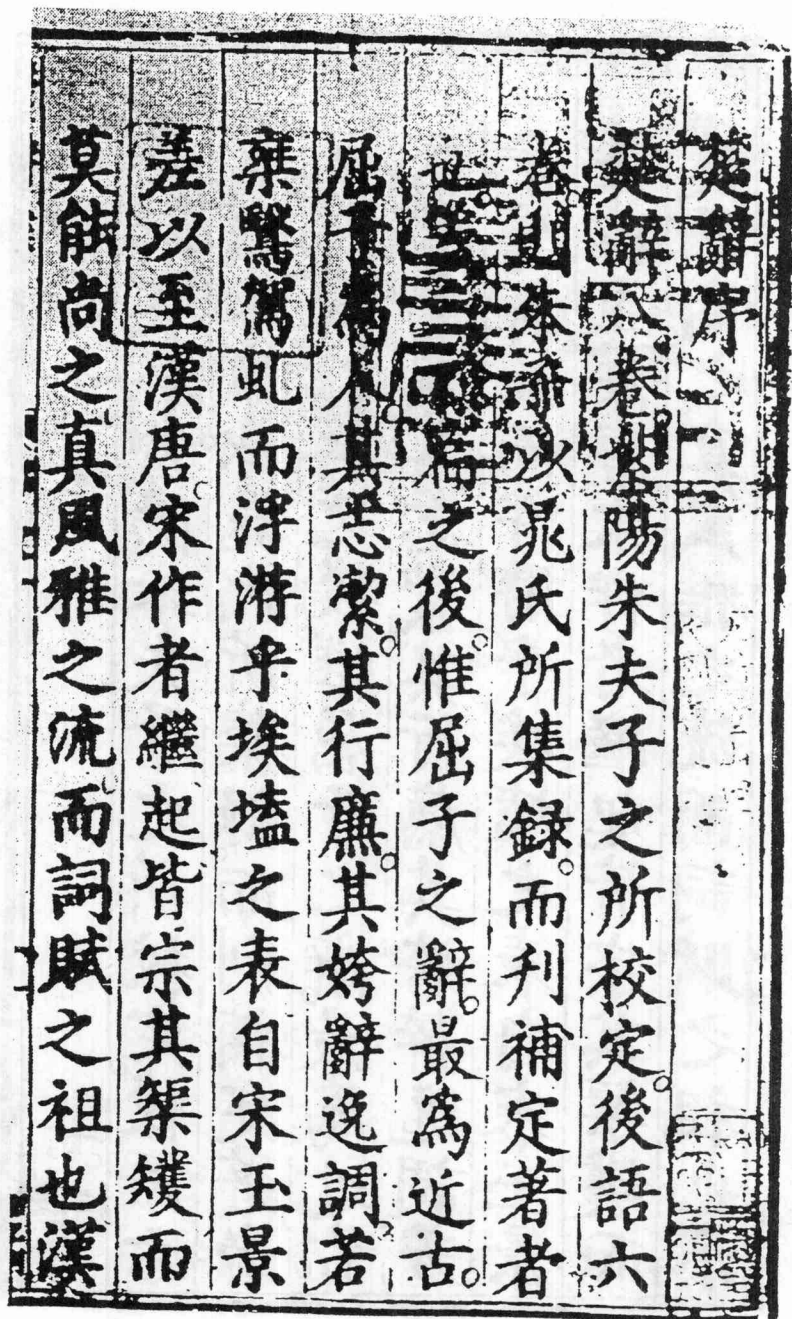 楚辭序
楚辭八卷紫陽朱夫子之所校定後語六
卷則朱子以晁氏所集録而刋補定著者
也 三百篇之後惟屈子之辭最爲近古
屈子爲人其志潔其行廉其姱辭逸調若
椉鷖駕虬而浮游乎埃壒之表自宋玉景
差以至漢唐宋作者繼起皆宗其榘矱而
莫能尚之真風雅之流而詞賦之祖也漢